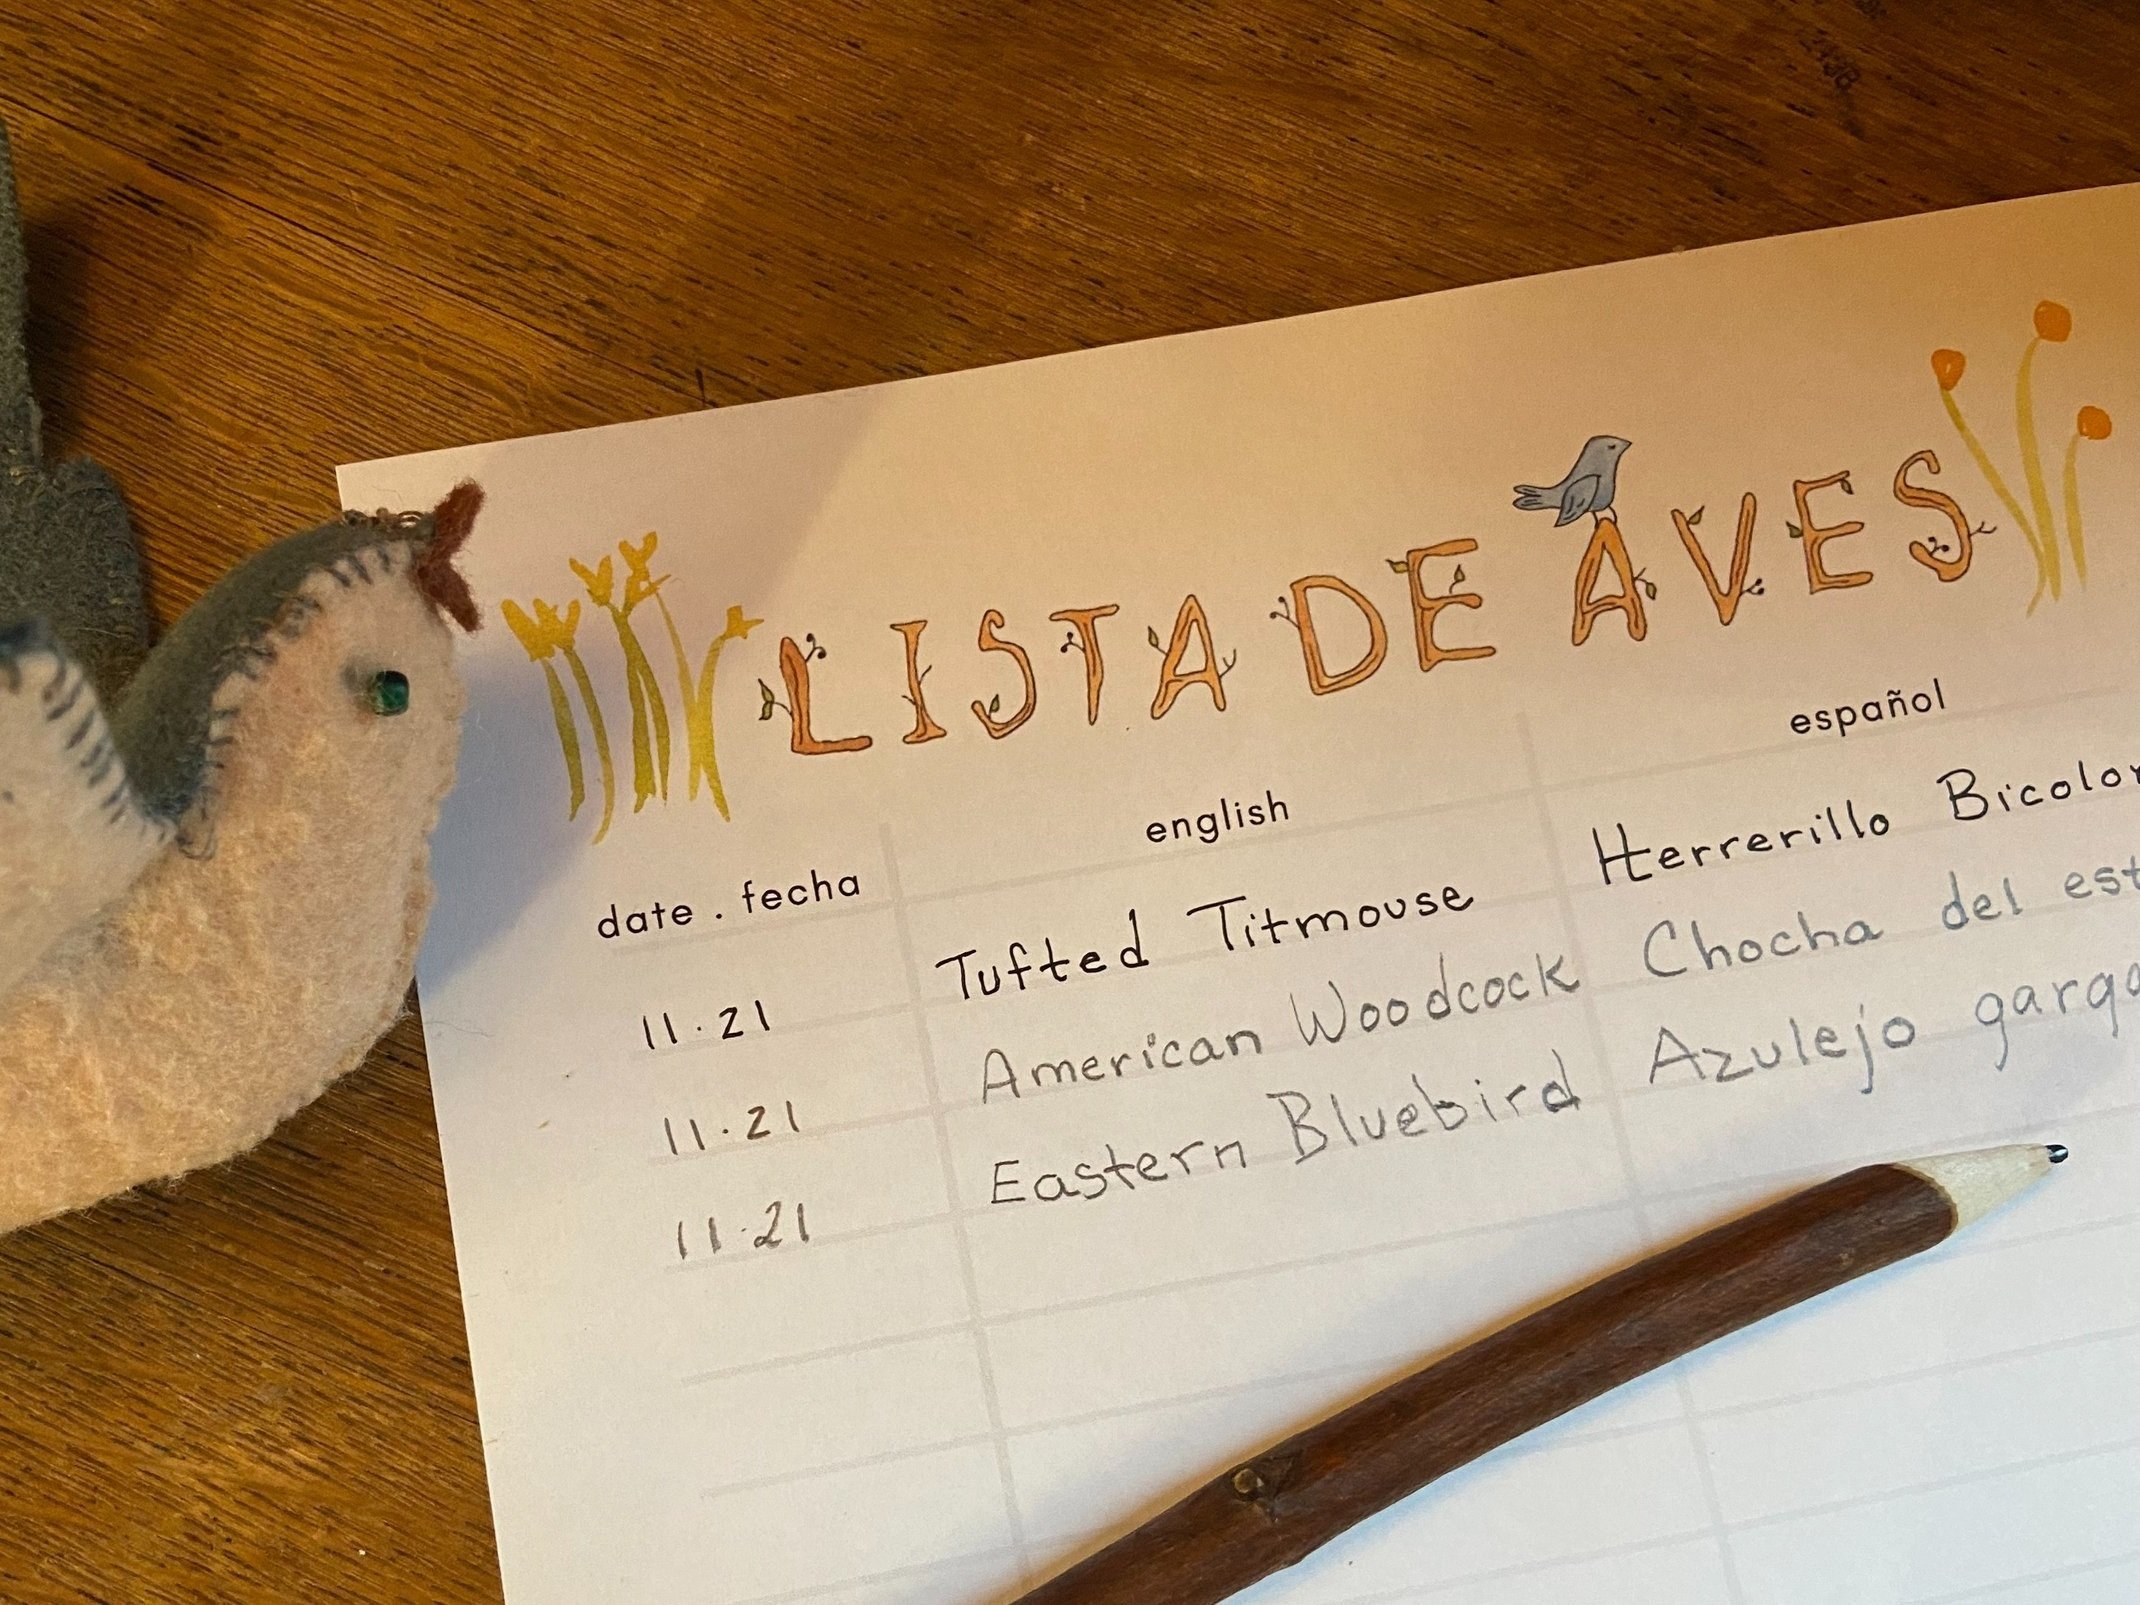 LISTA DE AVES
date . fecha english español
11.21 Tufted Titmouse Herrerillo Bicolor
11.21 American Woodcock Chocha del
11.21 Eastern Bluebird Azulejo